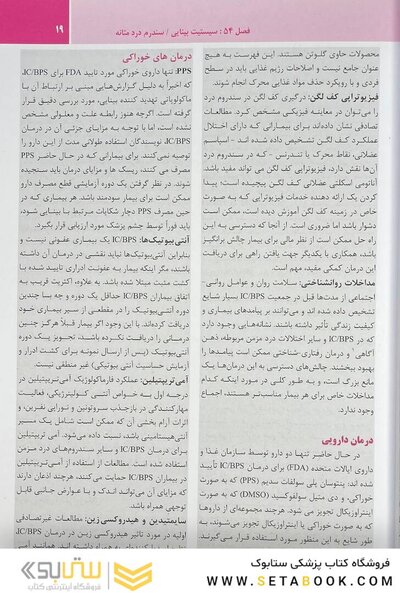 فصل ۵۴ : سیستیت بینابینی / سندرم درد مثانه
۱۹
محصولات حاوی گلوتن هستند. این فهرست به هیچ
عنوان جامع نیست و اصلاحات رژیم غذایی باید در سطح
فردی و با رویکرد حذف مواد غذایی محرک انجام شوند.
فیزیوتراپی کف لگن: درگیری کف لگن در سندروم درد
را می‌توان در معاینه فیزیکی مشخص کرد. مطالعات
تصادفی نشان داده‌اند برای بیمارانی که دارای اختلال
عملکرد کف لگن تشخیص داده شده اند - اسپاسم
عضلانی، نقاط محرک یا تندرنس - که در سندروم درد
آن‌ها نقش دارد، فیزیوتراپی کف لگن می تواند مفید باشد.
آناتومی اسکلتی عضلانی کف لگن پیچیده است؛ پیدا
کردن یک ارائه دهنده خدمات فیزیوتراپی که به صورت
خاص در زمینه کف لگن آموزش دیده است، ممکن است
دشوار باشد اما ضروری است. از آنجا که دسترسی به این
راه حل ممکن است از نظر مالی برای بیمار چالش برانگیز
باشد، همکاری با یکدیگر جهت یافتن راهی برای دریافت
این درمان کمکی مفید، مهم است.
مداخلات روانشناختی: سلامت روان و عوامل روانی-
اجتماعی از مدت‌ها قبل در جمعیت IC/BPS بسیار شایع
تشخیص داده شده اند و می‌توانند بر پیامدهای بیماری و
کیفیت زندگی تأثیر داشته باشند. نشانه‌هایی وجود دارد
که در IC/BPS و سایر اختلالات درد مزمن مربوطه، ذهن
آگاهی و درمان رفتاری-شناختی ممکن است پیامدها را
بهبود ببخشند. چالش‌های دسترسی به این درمان‌ها یک
مانع بزرگ است، و به طور کلی در مورد اینکه کدام
مداخلات خاص برای هر بیمار مناسب‌تر هستند، اجماع
وجود ندارد.
درمان دارویی
در حال حاضر تنها دو دارو توسط سازمان غذا و
داروی ایالات متحده (FDA) برای درمان IC/BPS تأیید
شده اند: پنتوسان پلی سولفات سدیم (PPS) که به صورت
خوراکی، و دی متیل سولفوکسید (DMSO) که به صورت
اینتراوزیکال تجویز می شود. هرچند مجموعه‌ای از داروها
که به صورت خوراکی یا اینتراوزیکال تجویز می‌شوند، به
طور شایع به این منظور مورد استفاده قرار می‌گیرند.
درمان های خوراکی
PPS: تنها داروی خوراکی مورد تایید FDA برای IC/BPS،
که اخیراً به دلیل گزارش‌هایی مبنی بر ارتباط آن با
ماکولوپاتی تهدید کننده بینایی، مورد بررسی دقیق قرار
گرفته است. اگرچه هنوز رابطه علت و معلولی مشخص
نشده است، اما با توجه به مزایای جزئی آن در درمان
IC/BPS، نویسندگان استفاده طولانی مدت از این دارو را
توصیه نمی‌کنند. برای بیمارانی که در حال حاضر PPS
مصرف می کنند، ریسک ها و مزایای درمان باید سنجیده
شوند. در نظر گرفتن یک دوره آزمایشی قطع مصرف دارو
ممکن است برای بیمار سودمند باشد. هر بیماری که در
حین مصرف PPS دچار شکایات مرتبط با بینایی شود،
باید فوراً توسط چشم پزشک مورد ارزیابی قرار بگیرد.
آنتی بیوتیک‌ها: IC/BPS یک بیماری عفونی نیست و
بنابراین آنتی‌بیوتیک‌ها نباید نقشی در درمان آن داشته
باشند، مگر اینکه بیمار به عفونت ادراری تایید شده با
کشت مثبت مبتلا شده باشد. به علاوه، اکثریت قریب به
اتفاق بیماران IC/BPS حداقل یک دوره و چه بسا چندین
دوره آنتی‌بیوتیک را در مقطعی از سیر بیماری خود
دریافت کرده‌اند. با این وجود اگر بیمار قبلاً هرگز چنین
درمانی را دریافت نکرده باشد، تجویز یک دوره
آنتی‌بیوتیک (پس از ارسال نمونه برای کشت ادرار و
آزمایش حساسیت آنتی بیوتیکی) غیر منطقی نیست.
آمی تریپتیلین: عملکرد فارماکولوژیک آمی‌تریپتیلین در
درجه اول به خواص آنتی کولینرژیکی، فعالیت
مهارکنندگی در بازجذب سروتونین و نوراپی نفرین، و
اثرات آرام بخشی آن که ممکن است شامل یک مسیر
آنتی‌هیستامینی باشد، نسبت داده می‌شود. آمی تریپتیلین
در درمان IC/BPS و سایر سندروم‌های درد مزمن
استفاده شده است. مطالعات از استفاده از آمی‌تریپتیلین
در بیماران IC/BPS حمایت می‌کنند، هرچند دارند
که مزایای آن می‌تواند اندک و با عوارض جانبی قابل
توجهی همراه باشد.
سایمتیدین و هیدروکسی زین: مطالعات غیرتصادفی
اولیه در مورد تاثیر هیدروکسی زین در درمان IC/BPS،
به همراه داشته اند. همانند آمی
ستابوک
فروشگاه اینترنتی کتاب
فروشگاه کتاب پزشکی ستابوک
WWW.SETABOOK.COM